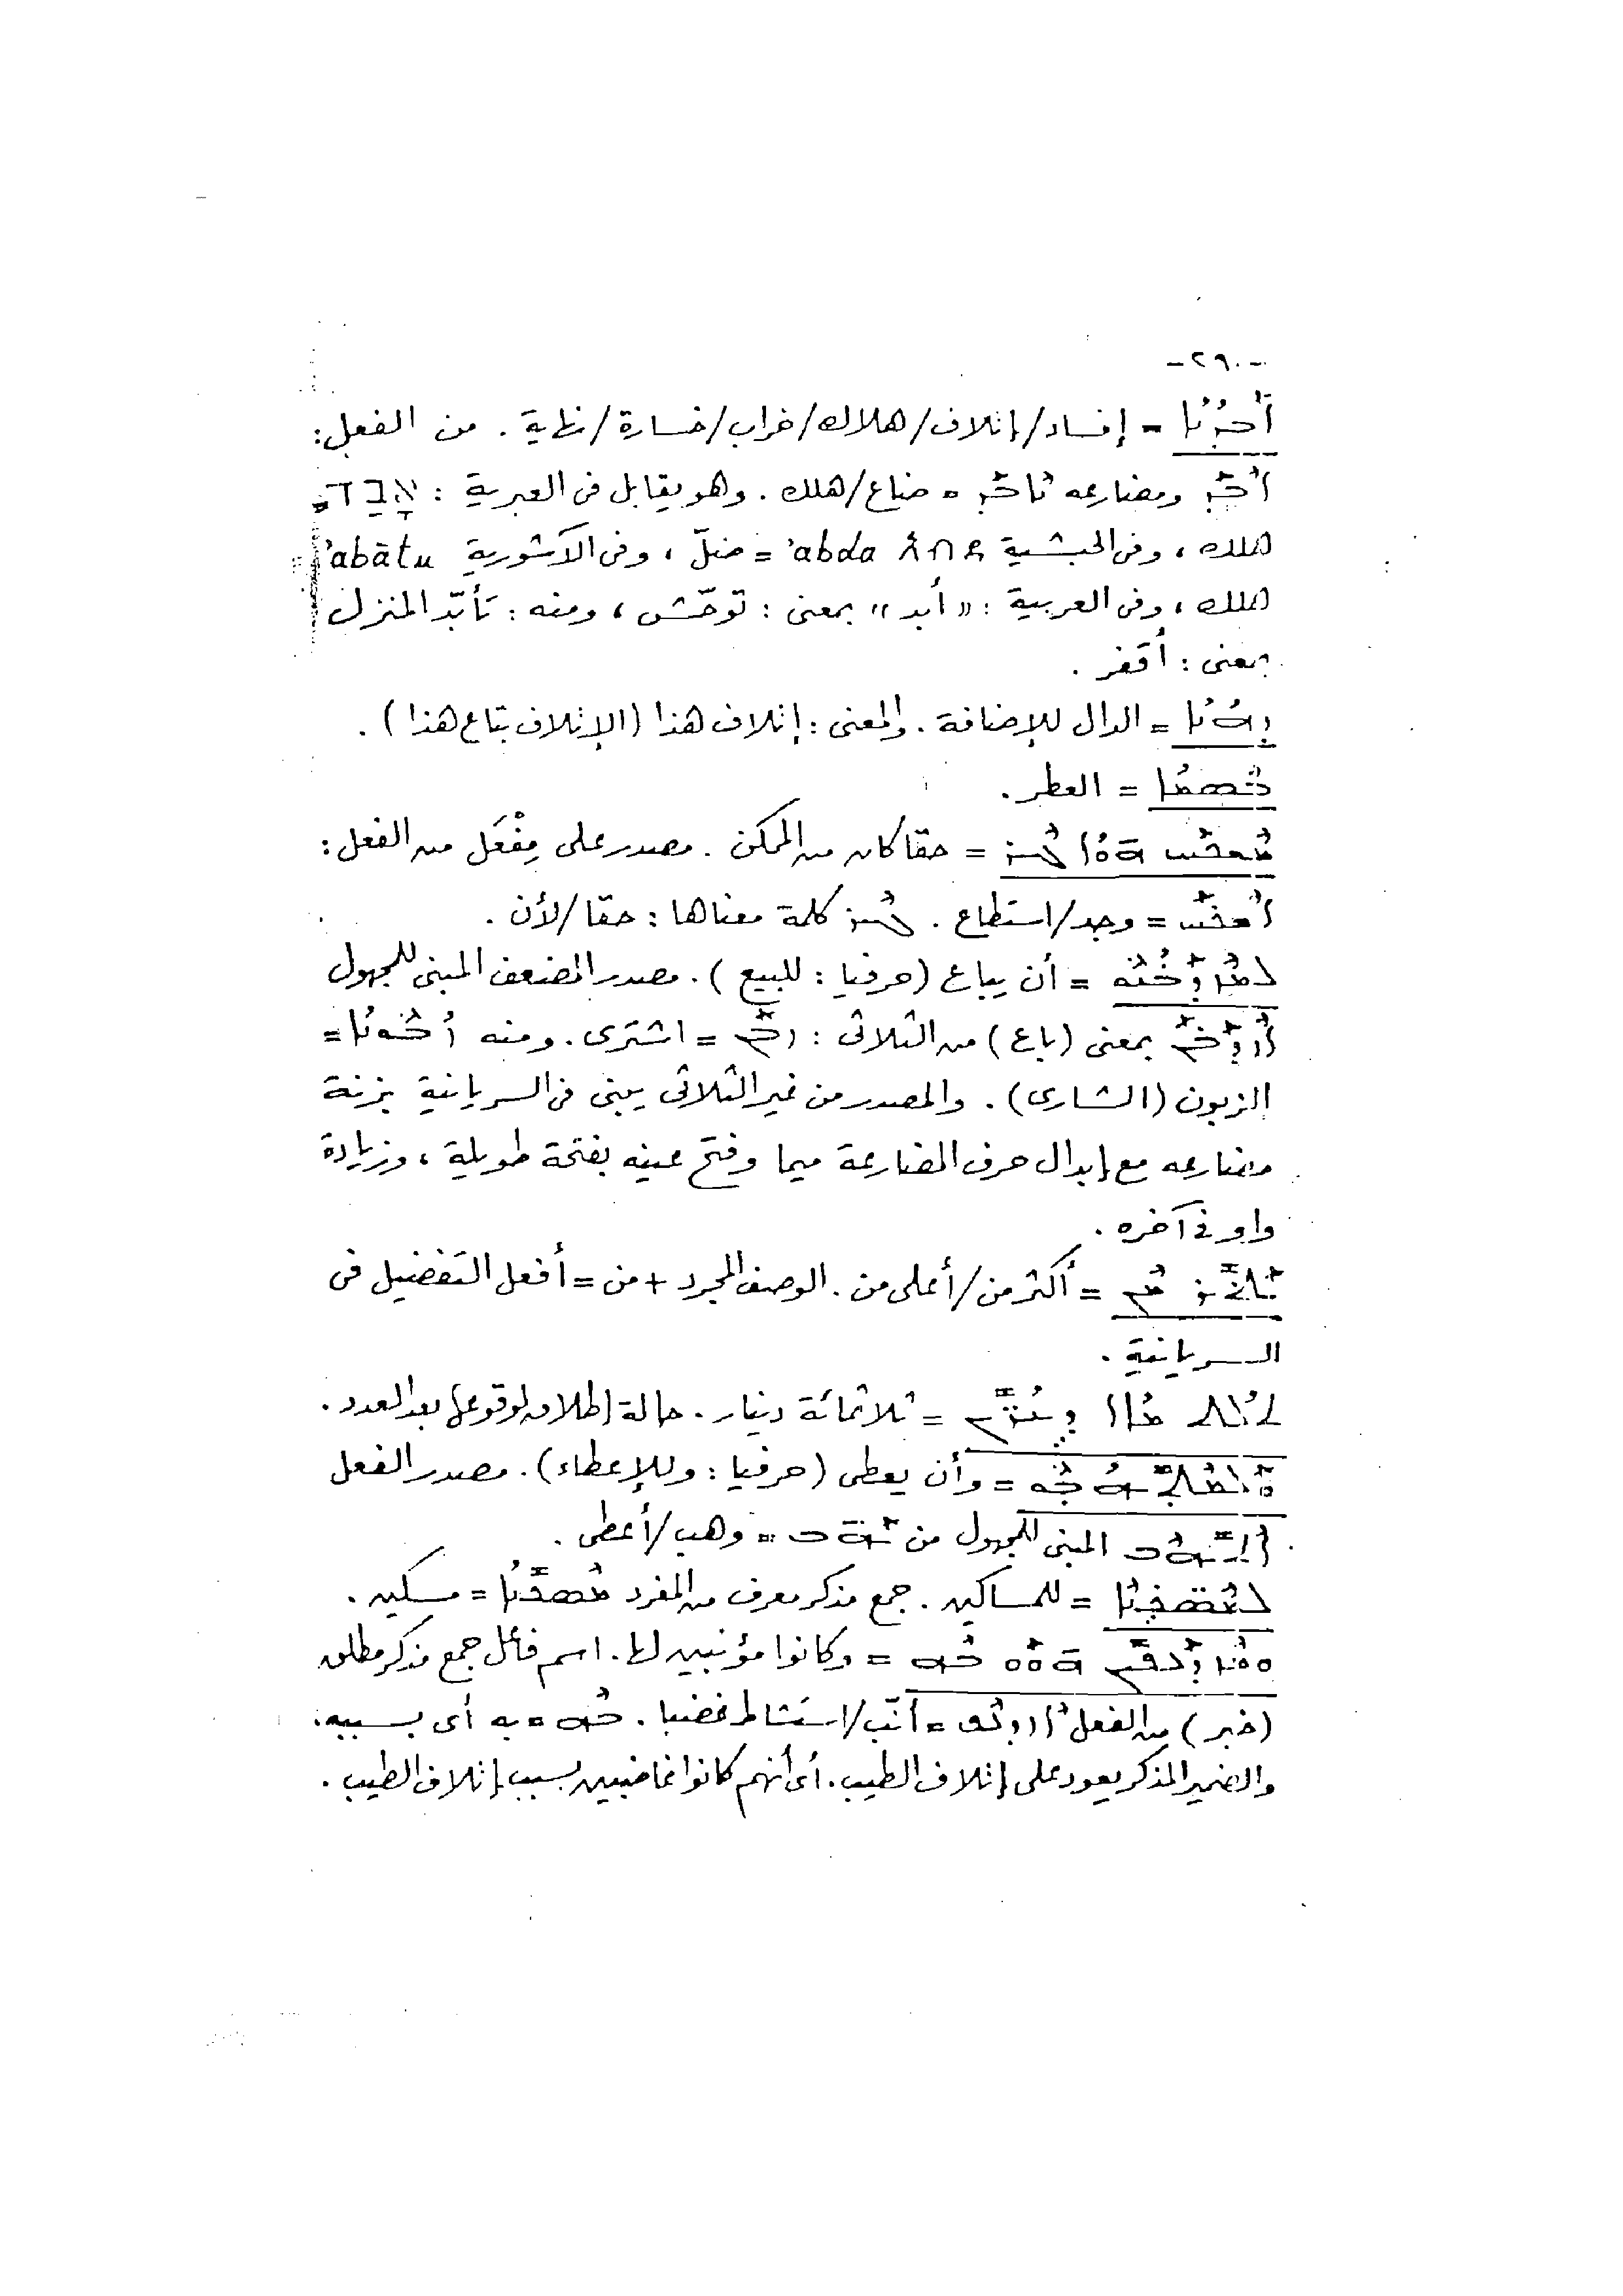 -٢٩٠-
ܐܒܕܢܐ = إفساد/إتلاف/هلاك/خراب/خسارة/نهاية. من الفعل:
ܐܒܕ ومضارعه ܢܐܒܕ = ضاع/هلك. وهو يقابل فى العبرية: אָבַד =
هلك، وفى الحبشية አብደ abda' = ضلّ، وفى الآشورية abātu' =
هلك، وفى العربية: «أبد» بمعنى: توحّش، ومنه: تأبّد المنزل
بمعنى: أقفر.
ܕܗܢܐ = الدال للإضافة. والمعنى: إتلاف هذا (الإتلاف بتاع هذا).
ܒܣܡܐ = العطر.
ܡܫܟܚ ܗܘܐ ܓܝܪ = حقا كان من الممكن. مصدر على مِفْعَل من الفعل:
ܐܫܟܚ = وجد/استطاع. ܓܝܪ كلمة معناها: حقا/لأن.
ܠܡܙܕܒܢܘ = أن يباع (حرفيا: للبيع). مصدر المضعف المبنى للمجهول
ܐܙܕܒܢ بمعنى (باع) من الثلاثى: ܙܒܢ = اشترى. ومنه ܙܒܘܢܐ =
الزبون (الشارى). والمصدر من غير الثلاثى يبنى فى السريانية بزنة
مضارعه مع إبدال حرف المضارعة ميما وفتح عينه بفتحة طويلة، وزيادة
واو فى آخره.
ܝܬܝܪ ܡܢ = أكثر من/أعلى من. الوصف المجرد + من = أفعل التفضيل فى
السريانية.
ܬܠܬ ܡܐܐ ܕܝܢܪܝܢ = ثلاثمائة دينار. حالة إطلاق لوقوعها بعد العدد.
ܘܠܡܬܝܗܒܘ = وأن يعطى (حرفيا: وللإعطاء). مصدر الفعل
ܐܬܝܗܒ المبنى للمجهول من ܝܗܒ = وهب/أعطى.
ܠܡܣܟܢܐ = للمساكين. جمع مذكر معرف من المفرد ܡܣܟܢܐ = مسكين.
ܘܡܙܕܥܦܝܢ ܗܘܘ ܒܗ = وكانوا مؤنبين لها. اسم فاعل جمع مذكر مطلق
(خبر) من الفعل ܐܙܕܥܦ = أنّب/استشاط غضبا. ܒܗ = به أى بسببه.
والضمير المذكر يعود على إتلاف الطيب. أى أنهم كانوا غاضبين بسبب إتلاف الطيب.